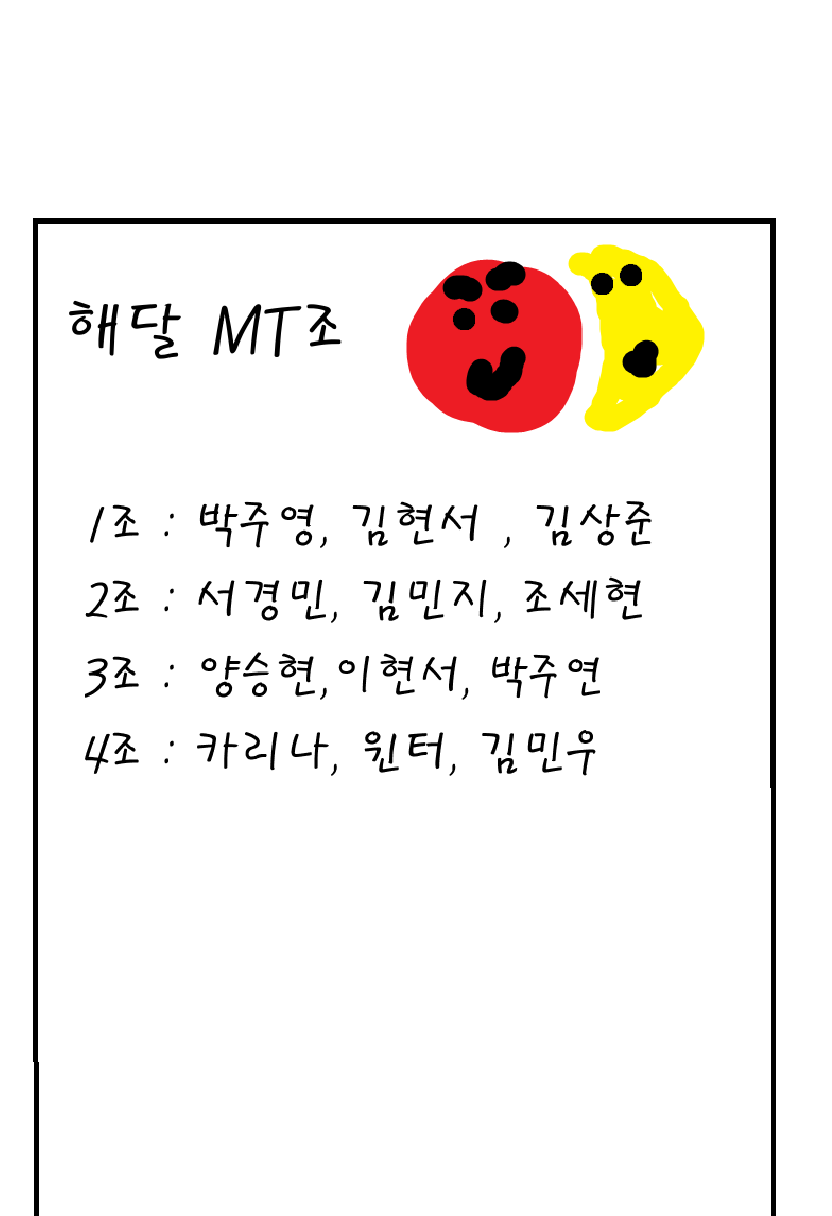 해달 MT조
1조 : 박주영, 김현서 , 김상준
2조 : 서경민, 김민지, 조세현
3조 : 양승현,이현서, 박주연
4조 : 카리나, 윈터, 김민우